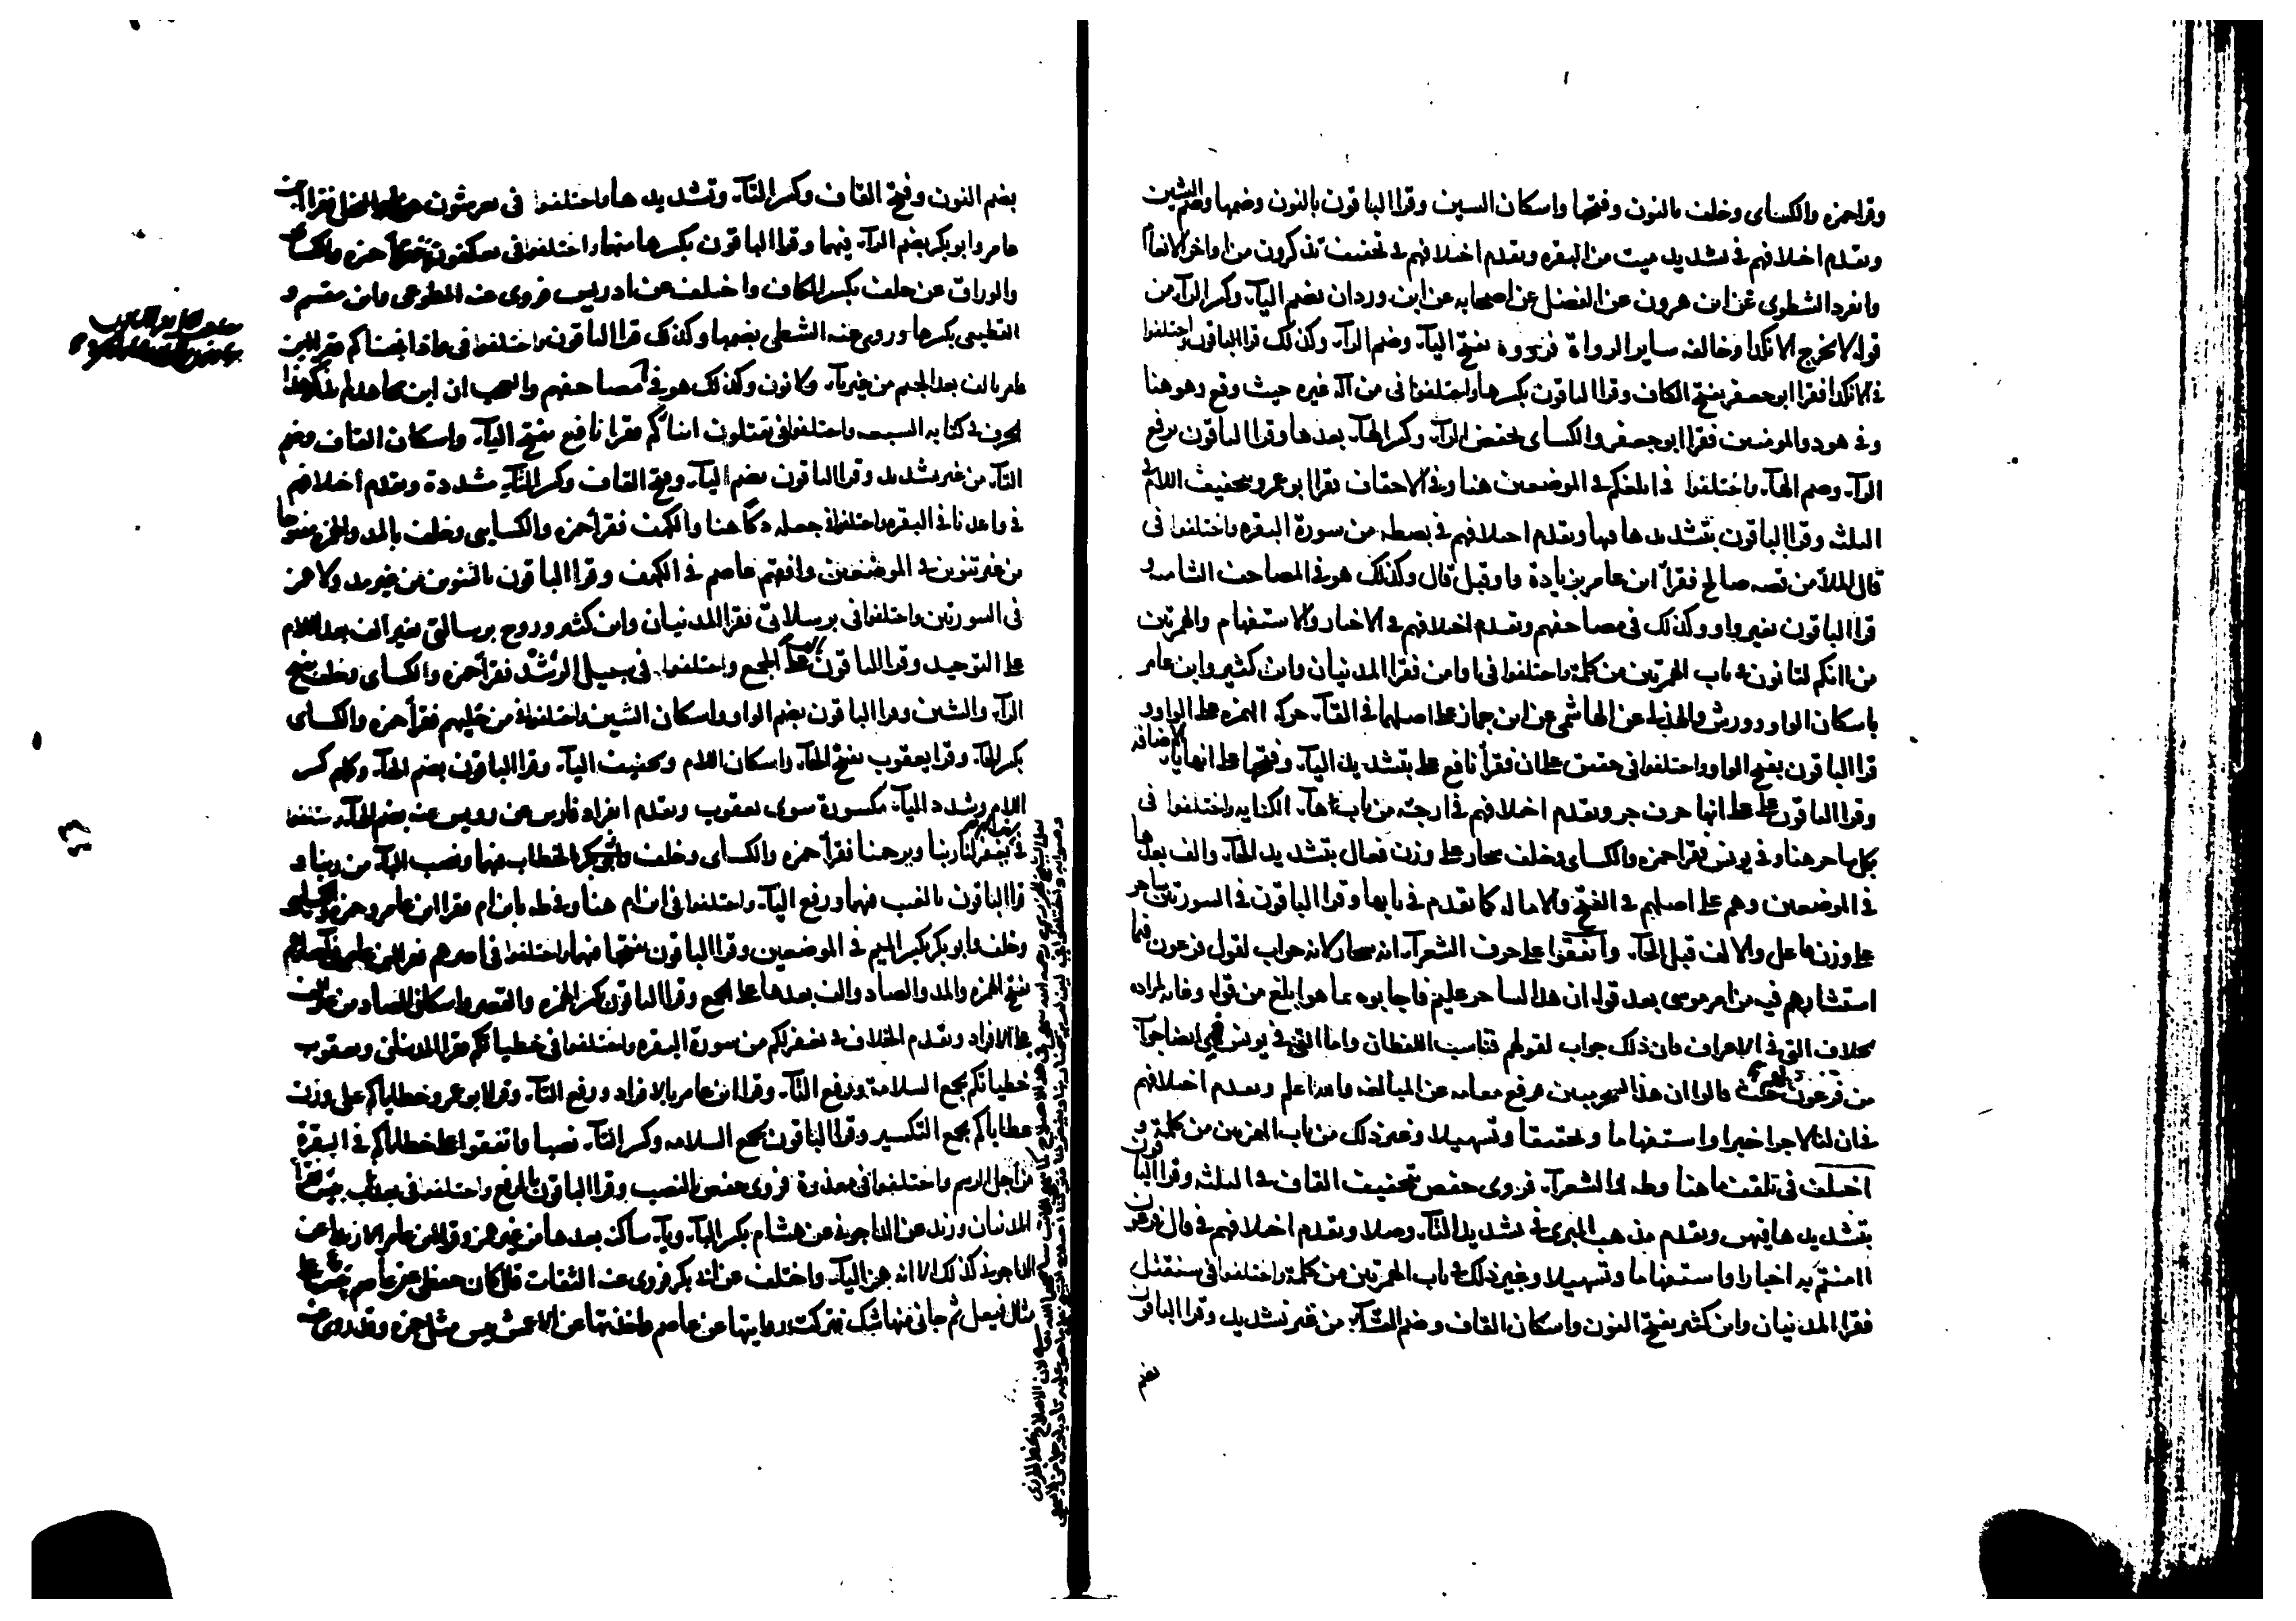 وقرا حمزة والكساى وخلف بالنون وفتحها واسكان الشين وقرا الباقون بالنون وضمها وضم الشين
وتقدم اختلافهم فى تشديد ميت من البقره وتقدم اختلافهم فى تخفيف تذكرون من اواخر الانعام
وانفرد الشطوى عن ابن هرون عن الفضل عن اصحابه عن ابن وردان بضم اليآ وكسر الرآ من
قوله لا يخرج الا نكدا وخالفه ساير الرواة فرووه بفتح اليآ وضم الرآ وكذلك قرا الباقون واختلفوا
فى الا نكدا فقرا ابو جعفر بفتح الكاف وقرا الباقون بكسرها واختلفوا فى من اله غيره حيث وقع وهو هنا
وفى هود والمومنين فقرا ابو جعفر والكساى بخفض الرآ وكسر الهآ بعدها وقرا الباقون برفع
الرآ وضم الهآ واختلفوا فى ابلغكم فى الموضعين هنا وفى الاحقاف فقرا ابو عمرو بتخفيف اللام فى
الثلثه وقرا الباقون بتشديدها فيها وتقدم اختلافهم فى بصطه من سورة البقره واختلفوا فى
قال الملا من قصه صالح فقرأ ابن عامر بزيادة واو قبل قال وكذلك هو فى المصاحف الشاميه و
قرا الباقون بغير واو وكذلك فى مصاحفهم وتقدم اختلافهم فى الاخبار والاستفهام والهمزتين
من اانكم لتاتون فى باب الهمزتين من كلمة واختلفوا فى اوامن فقرا المدنيان وابن كثير وابن عامر
باسكان الواو وورش والهذلى عن الهاشمى عن ابن جماز على اصلهما فى القآ حركة الهمزه على الواو و
قرا الباقون بفتح الواو واختلفوا فى حقيق على ان فقرأ نافع على بتشديد اليآ وفتحها على انها يا الاضافه
وقرا الباقون على على انها حرف جر وتقدم اختلافهم فى ارجئه من باب هآ الكنايه واختلفوا فى
بكل ساحر هنا وفى يونس فقرا حمزه والكساى وخلف سحار على وزن فعال بتشديد الحآ والف بعدها
فى الموضعين وهم على اصلهم فى الفتح والاماله كما تقدم فى بابها وقرا الباقون فى السورتين ساحر
على وزن فاعل والالف قبل الحآ واتفقوا على حرف الشعرآ انه سحار لانه جواب لقول فرعون فيما
استشارهم فيه من امر موسى بعد قوله ان هذا لساحر عليم فاجابوه بما هو ابلغ من قوله رعاية لمراده
بخلاف التى فى الاعراف فان ذلك جواب لقولهم فتناسب اللفظان واما التى فى يونس فهى ايضا جوآ
من فرعون حيث قالوا ان هذا لسحر مبين فرفع مقامه عن المبالغه والله اعلم وتقدم اختلافهم
فى ان لنا لاجرا خبرا واستفهاما وتحقيقا وتسهيلا وغير ذلك من باب الهمزتين من كلمة و
اختلف فى تلقف ما هنا وطه والشعرآ فروى حفص بتخفيف القاف فى الثلثه وقرا الباقون
بتشديدها فيهن وتقدم مذهب البزى فى تشديد التآ وصلا وتقدم اختلافهم فى قال فرعون
اامنتم به اخبارا واستفهاما وتسهيلا وغير ذلك فى باب الهمزتين من كلمة واختلفوا فى سنقتل
فقرا المدنيان وابن كثير بفتح النون واسكان القاف وضم التآ من غير تشديد وقرا الباقون
بضم
بضم النون وفتح القاف وكسر التآ وتشديدها واختلفوا فى يعرشون هنا والنحل فقرا ابن
عامر وابو بكر بضم الرآ فيهما وقرا الباقون بكسرها منهما واختلفوا فى يعكفون فقرأ حمزه والكساى
والوراق عن خلف بكسر الكاف واختلف عن ادريس فروى عنه المطوعى وابن مقسم و
القطيعى بكسرها وروى عنه الشطى بضمها وكذلك قرا الباقون واختلفوا فى واذ انجيناكم فقرا ابن
عامر بالف بعد الجيم من غير يآ ولا نون وكذلك هو فى مصاحفهم والعجب ان ابن مجاهد لم يذكر هذا
الحرف فى كتابه السبعه واختلفوا فى يقتلون ابناكم فقرا نافع بفتح اليآ واسكان القاف وضم
التآ من غير تشديد وقرا الباقون بضم اليآ وفتح القاف وكسر التآ مشددة وتقدم اختلافهم
فى واعدنا فى البقره واختلفوا فى جعله دكا هنا والكهف فقرأ حمزه والكساى وخلف بالمد والهمز مفتوحا
من غير تنوين فى الموضعين وافقهم عاصم فى الكهف وقرا الباقون بالتنوين من غير مد ولا همز
فى السورتين واختلفوا فى برسلاتى فقرا المدنيان وابن كثير وروح برسالتى بغير الف بعد اللام
على التوحيد وقرا الباقون بالف على الجمع واختلفوا فى سبيل الرشد فقرأ حمزه والكساى وخلف بفتح
الرآ والشين وقرا الباقون بضم الرآ واسكان الشين واختلفوا فى من حليهم فقرأ حمزه والكساى
بكسر الحآ وقرا يعقوب بفتح الحآ واسكان اللام وتخفيف اليآ وقرا الباقون بضم الحآ وكلهم كسر
اللام وشدد اليآ مكسورة سوى يعقوب وتقدم انفراد فارس عن رويس عنه بضم الهآ واختلفوا
فى يغفر لنا ربنا ويرحمنا فقرأ حمزه والكساى وخلف بالخطاب فيهما ونصب البآ من ربنا و
قرا الباقون بالغيب فيهما ورفع البآ واختلفوا فى ابن ام هنا وفى طه يا بن ام فقرا ابن عامر وحمزه والكساى
وخلف وابو بكر بكسر الميم فى الموضعين وقرا الباقون بفتحها فيهما واختلفوا فى اصرهم فقرا ابن عامر
بفتح الهمزه والمد والصاد والف بعدها على الجمع وقرا الباقون بكسر الهمزه والقصر واسكان الصاد من غير الف
على الافراد وتقدم الخلاف فى نغفر لكم من سورة البقره واختلفوا فى خطياتكم فقرا المدنيان ويعقوب
خطياتكم بجمع السلامة ورفع التآ وقرا ابن عامر بالافراد ورفع التآ وقرا ابو عمرو خطاياكم على وزن
عطاياكم بجمع التكسير وقرا الباقون بجمع السلامه وكسر التآ نصبا واتفقوا على خطاياكم فى البقرة
من اجل الرسم واختلفوا فى معذرة فروى حفص بالنصب وقرا الباقون بالرفع واختلفوا فى بعذاب بيس فقرأ
المدنيان وزيد عن الداجونى عن هشام بكسر البآ ويآ ساكنة بعدها من غير همز وقرا ابن عامر الا زيدا عن
الداجونى كذلك الا انه همز اليآ واختلف عن ابى بكر فروى عنه الثقات قال كان حفظى عن عاصم بيئس على
مثال فيعل ثم جانى منها شك فتركت روايتها عن عاصم واخذتها عن الاعمش بيس مثل حمزه وقد روى عنه